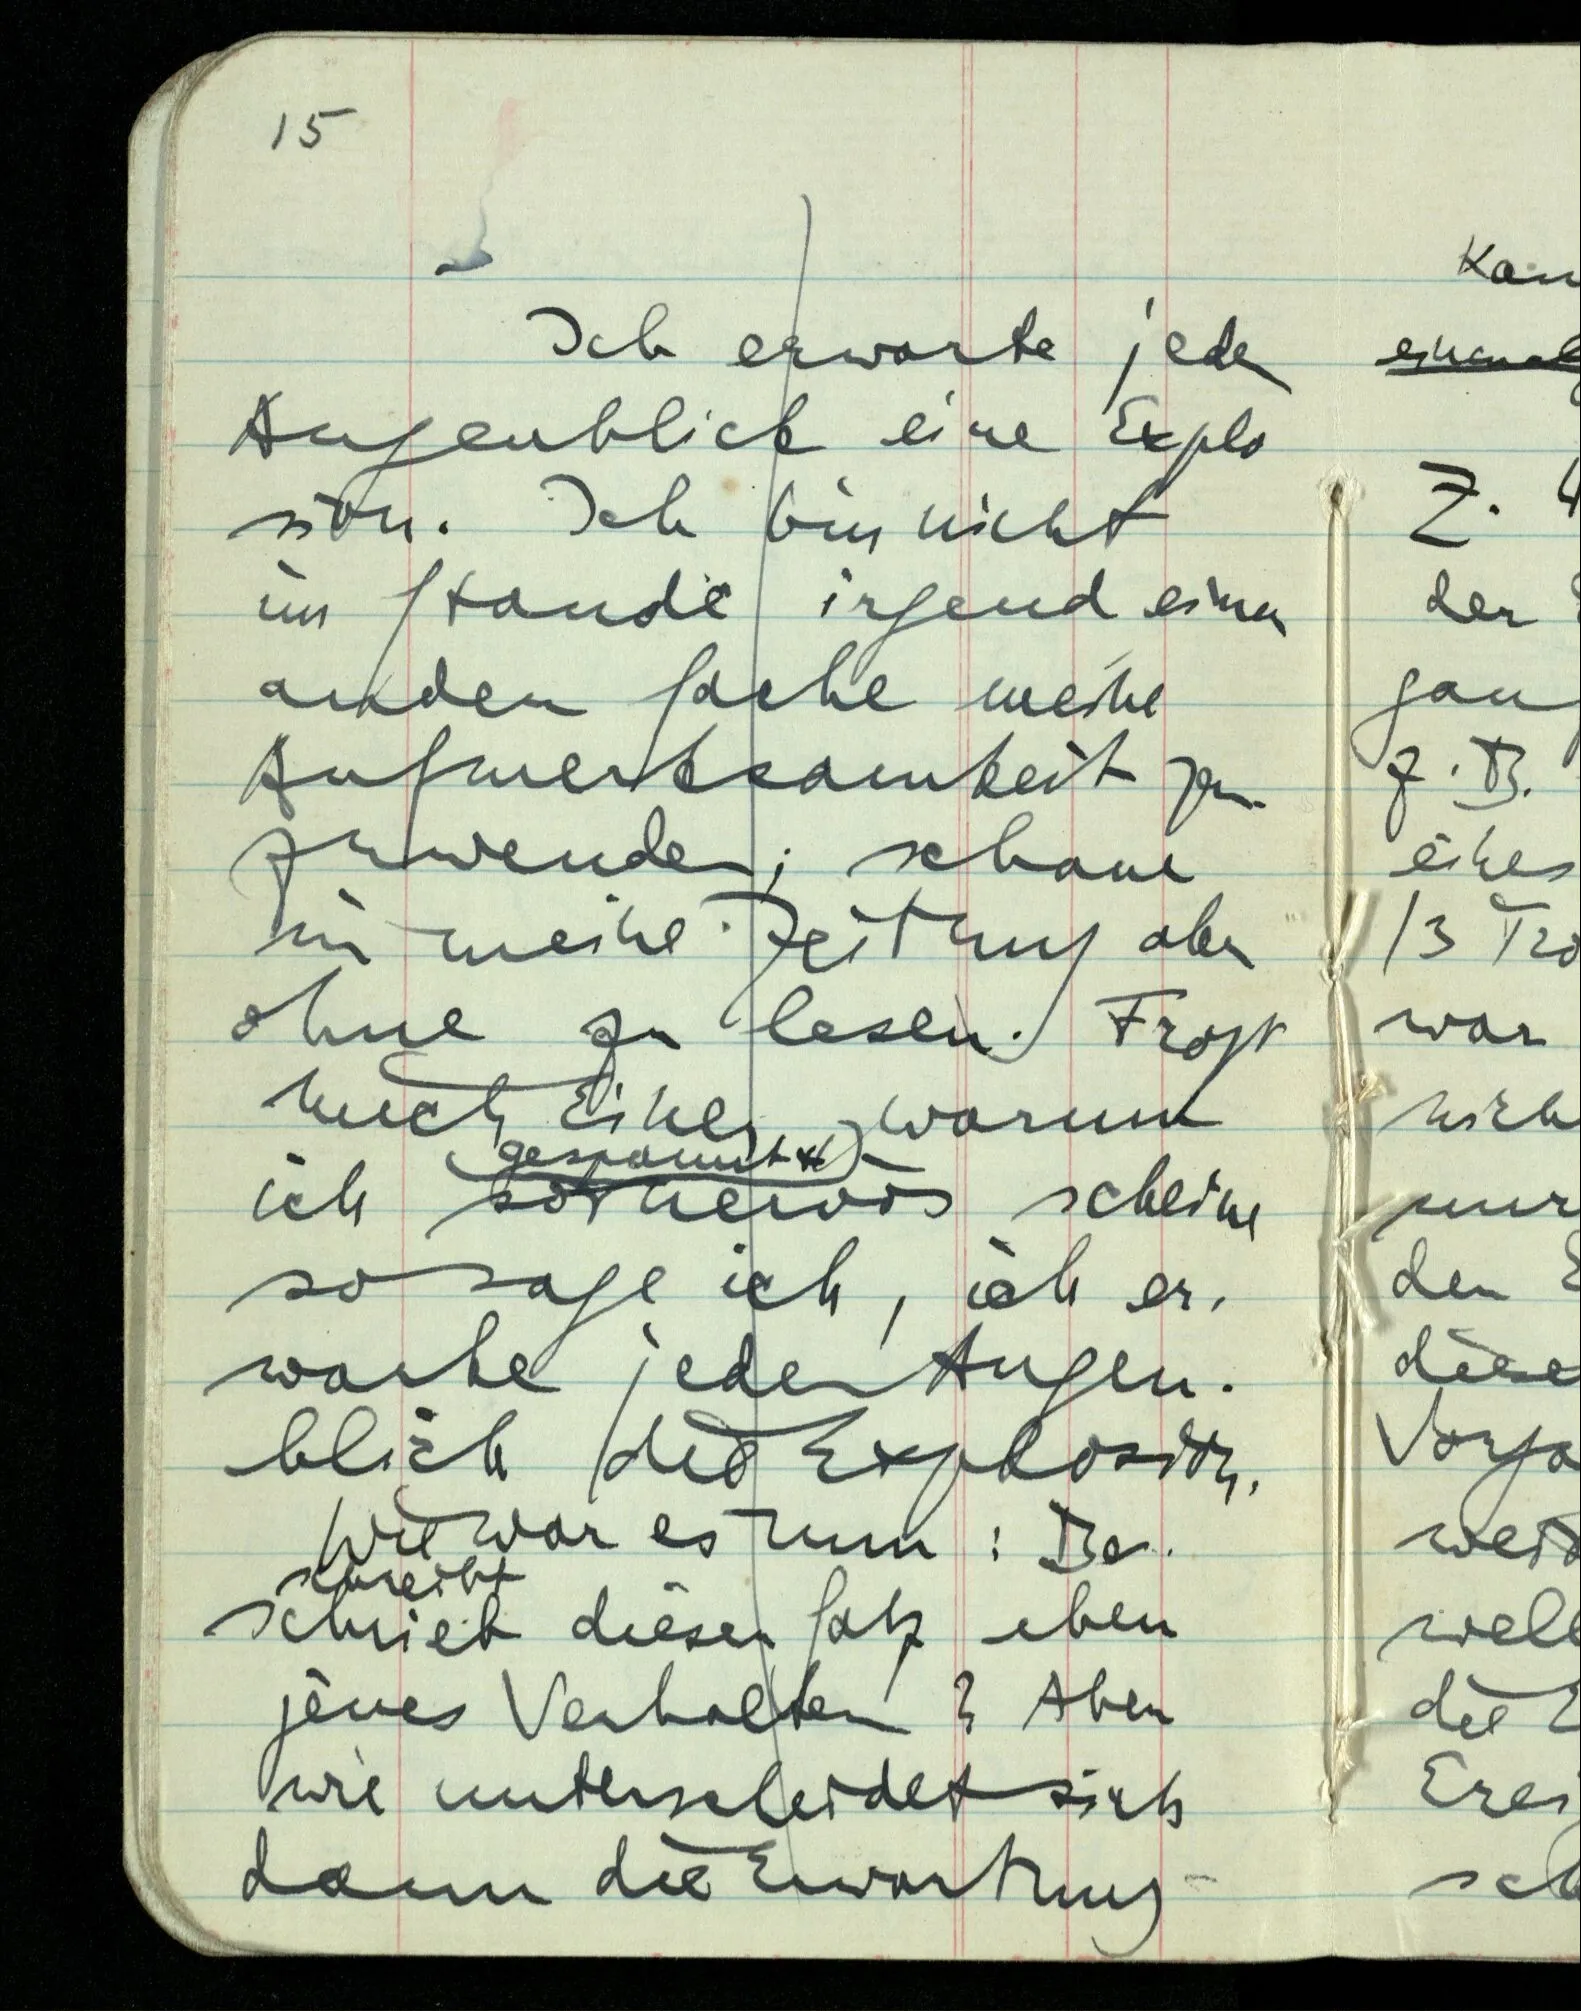 15
Ich erwarte jeden
Augenblick eine Explo
sion. Ich bin nicht
im Stande irgend einer
andern Sache meine
Aufmerksamkeit zu
zuwenden; schaue
in meine Zeitung aber
ohne zu lesen. Fragt
mich Einer warum
gespannt
ich so nervös scheine
so sage ich, ich er.
warte jeden Augen.
blick die Explosion.
Wie war es nun: Be.
schreibt
schrieb dieser Satz eben
jenes Verhalten? Aber
wie unterscheidet sich
dann die Erwartung
Z.
der
z.B.
eines
war
nur
den
diese
die